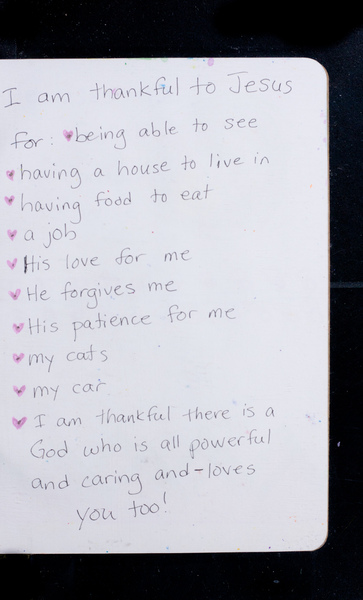 I am thankful to Jesus
for: ♥being able to see
♥having a house to live in
♥having food to eat
♥a job
♥His love for me
♥He forgives me
♥His patience for me
♥my cats
♥my car
♥I am thankful there is a
God who is all powerful
and caring and-loves
you too!